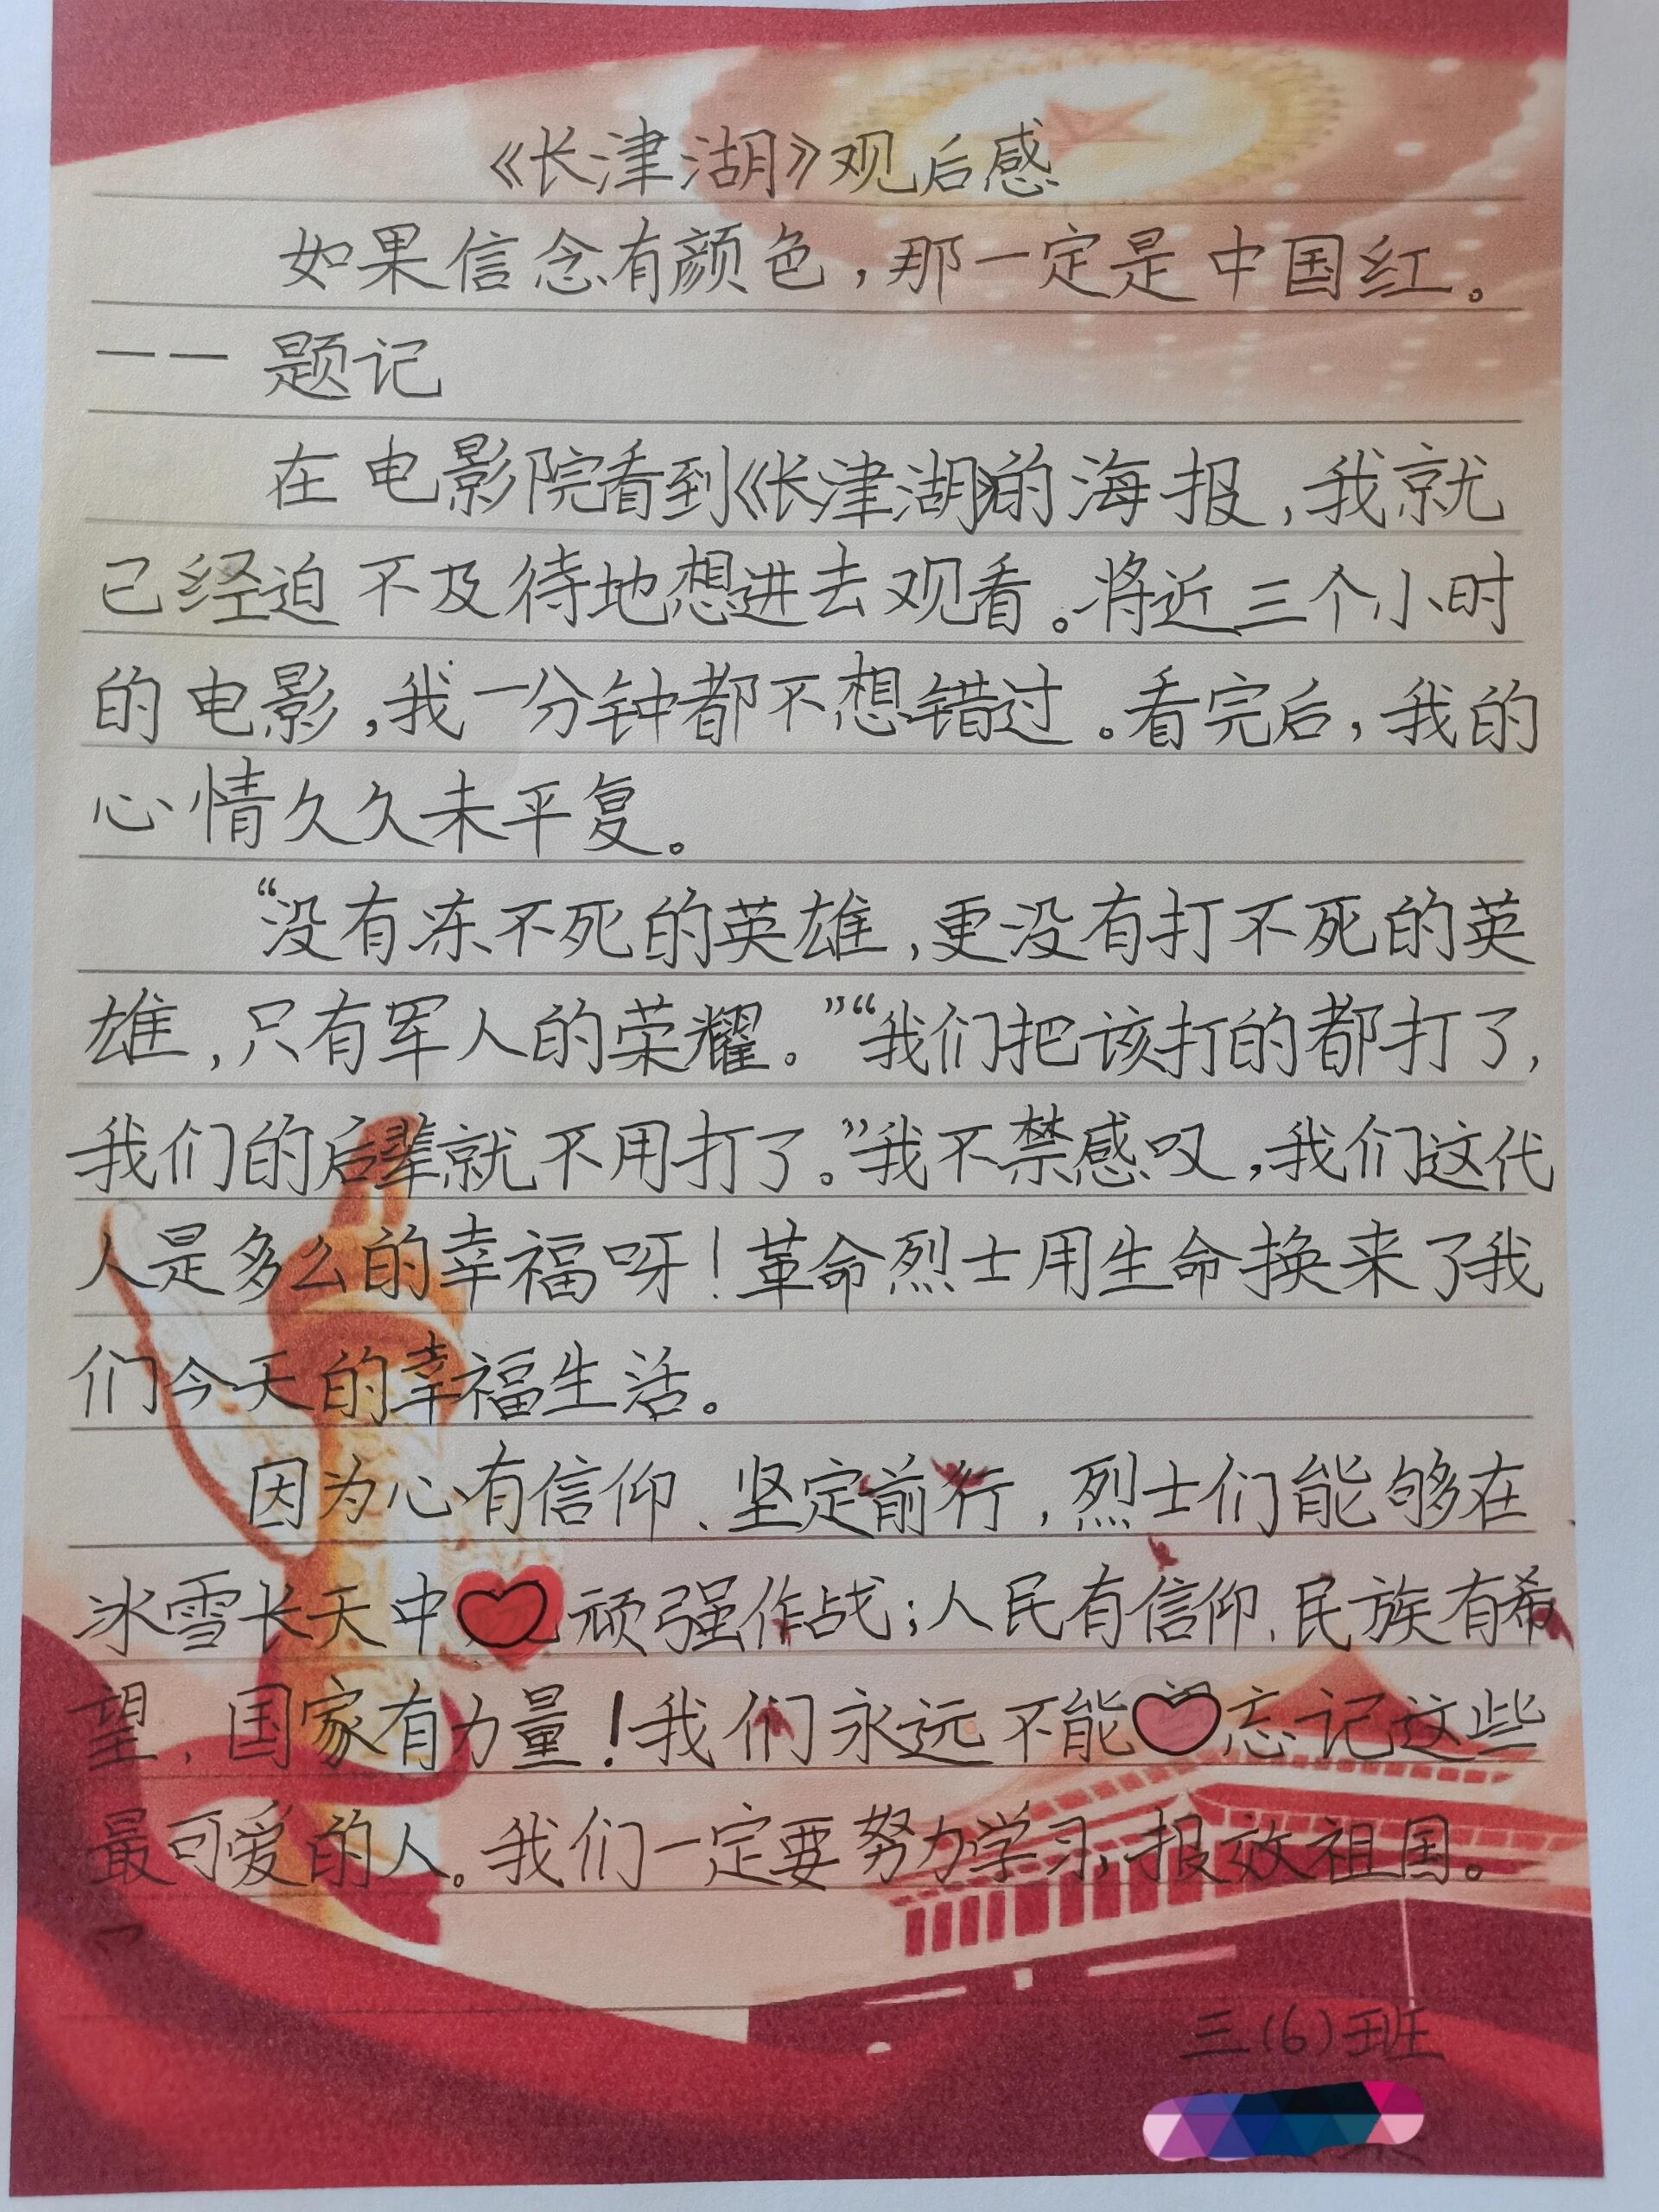 《长津湖》观后感
如果信念有颜色，那一定是中国红。
——题记
在电影院看到《长津湖》的海报，我就
已经迫不及待地想进去观看。将近三个小时
的电影，我一分钟都不想错过。看完后，我的
心情久久未平复。
“没有冻不死的英雄，更没有打不死的英
雄，只有军人的荣耀。”“我们把该打的都打了，
我们的后辈就不用打了。”我不禁感叹，我们这代
人是多么的幸福呀！革命烈士用生命换来了我
们今天的幸福生活。
因为心有信仰、坚定前行，烈士们能够在
冰雪长天中顽强作战；人民有信仰、民族有希
望、国家有力量！我们永远不能忘记这些
最可爱的人。我们一定要努力学习，报效祖国。
三（6）班